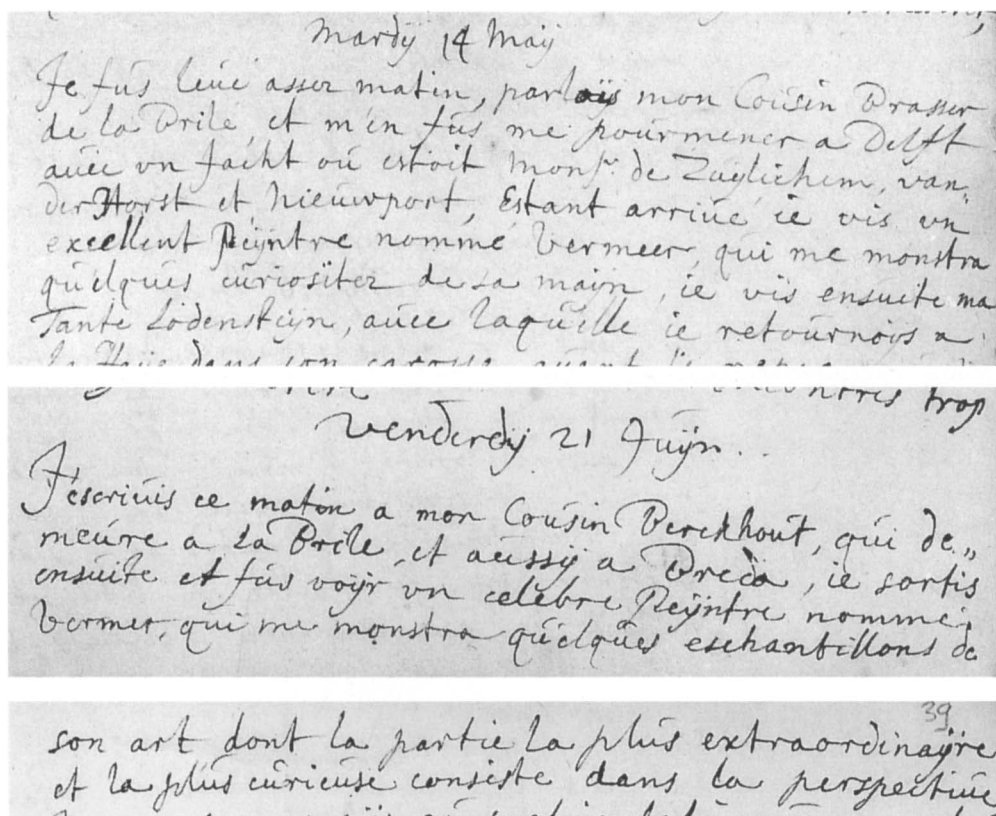 Mardy 14 Maij
Je fus levé assez matin, parlaÿs mon Cousin Brasser
de la Brile, et m'en fus me pourmener a Delft
avec vn Jacht où estoit Monsr. de Zuÿlichem, van
der Horst et Nieuwport, Estant arrivé, ie vis vn
excellent Peÿntre nommé Vermeer, qui me monstra
quelques curiositez de sa majn, ie vis ensuite ma
Tante Lodensteijn, avec laquelle ie retournoÿs a
la Haÿe dans son carosse
trop
Vendredÿ 21 Juÿn.
J'escrivis ce matin a mon Cousin Berckhout, qui de„
meure a la Brile, et aussÿ a Breda, ie sortis
ensuite et fus voÿr vn celebre Peÿntre nommé,
Vermer, qui me monstra quelques eschantillons de
39
son art dont la partie la plus extraordinaÿre
et la plus curieuse consiste dans la perspective